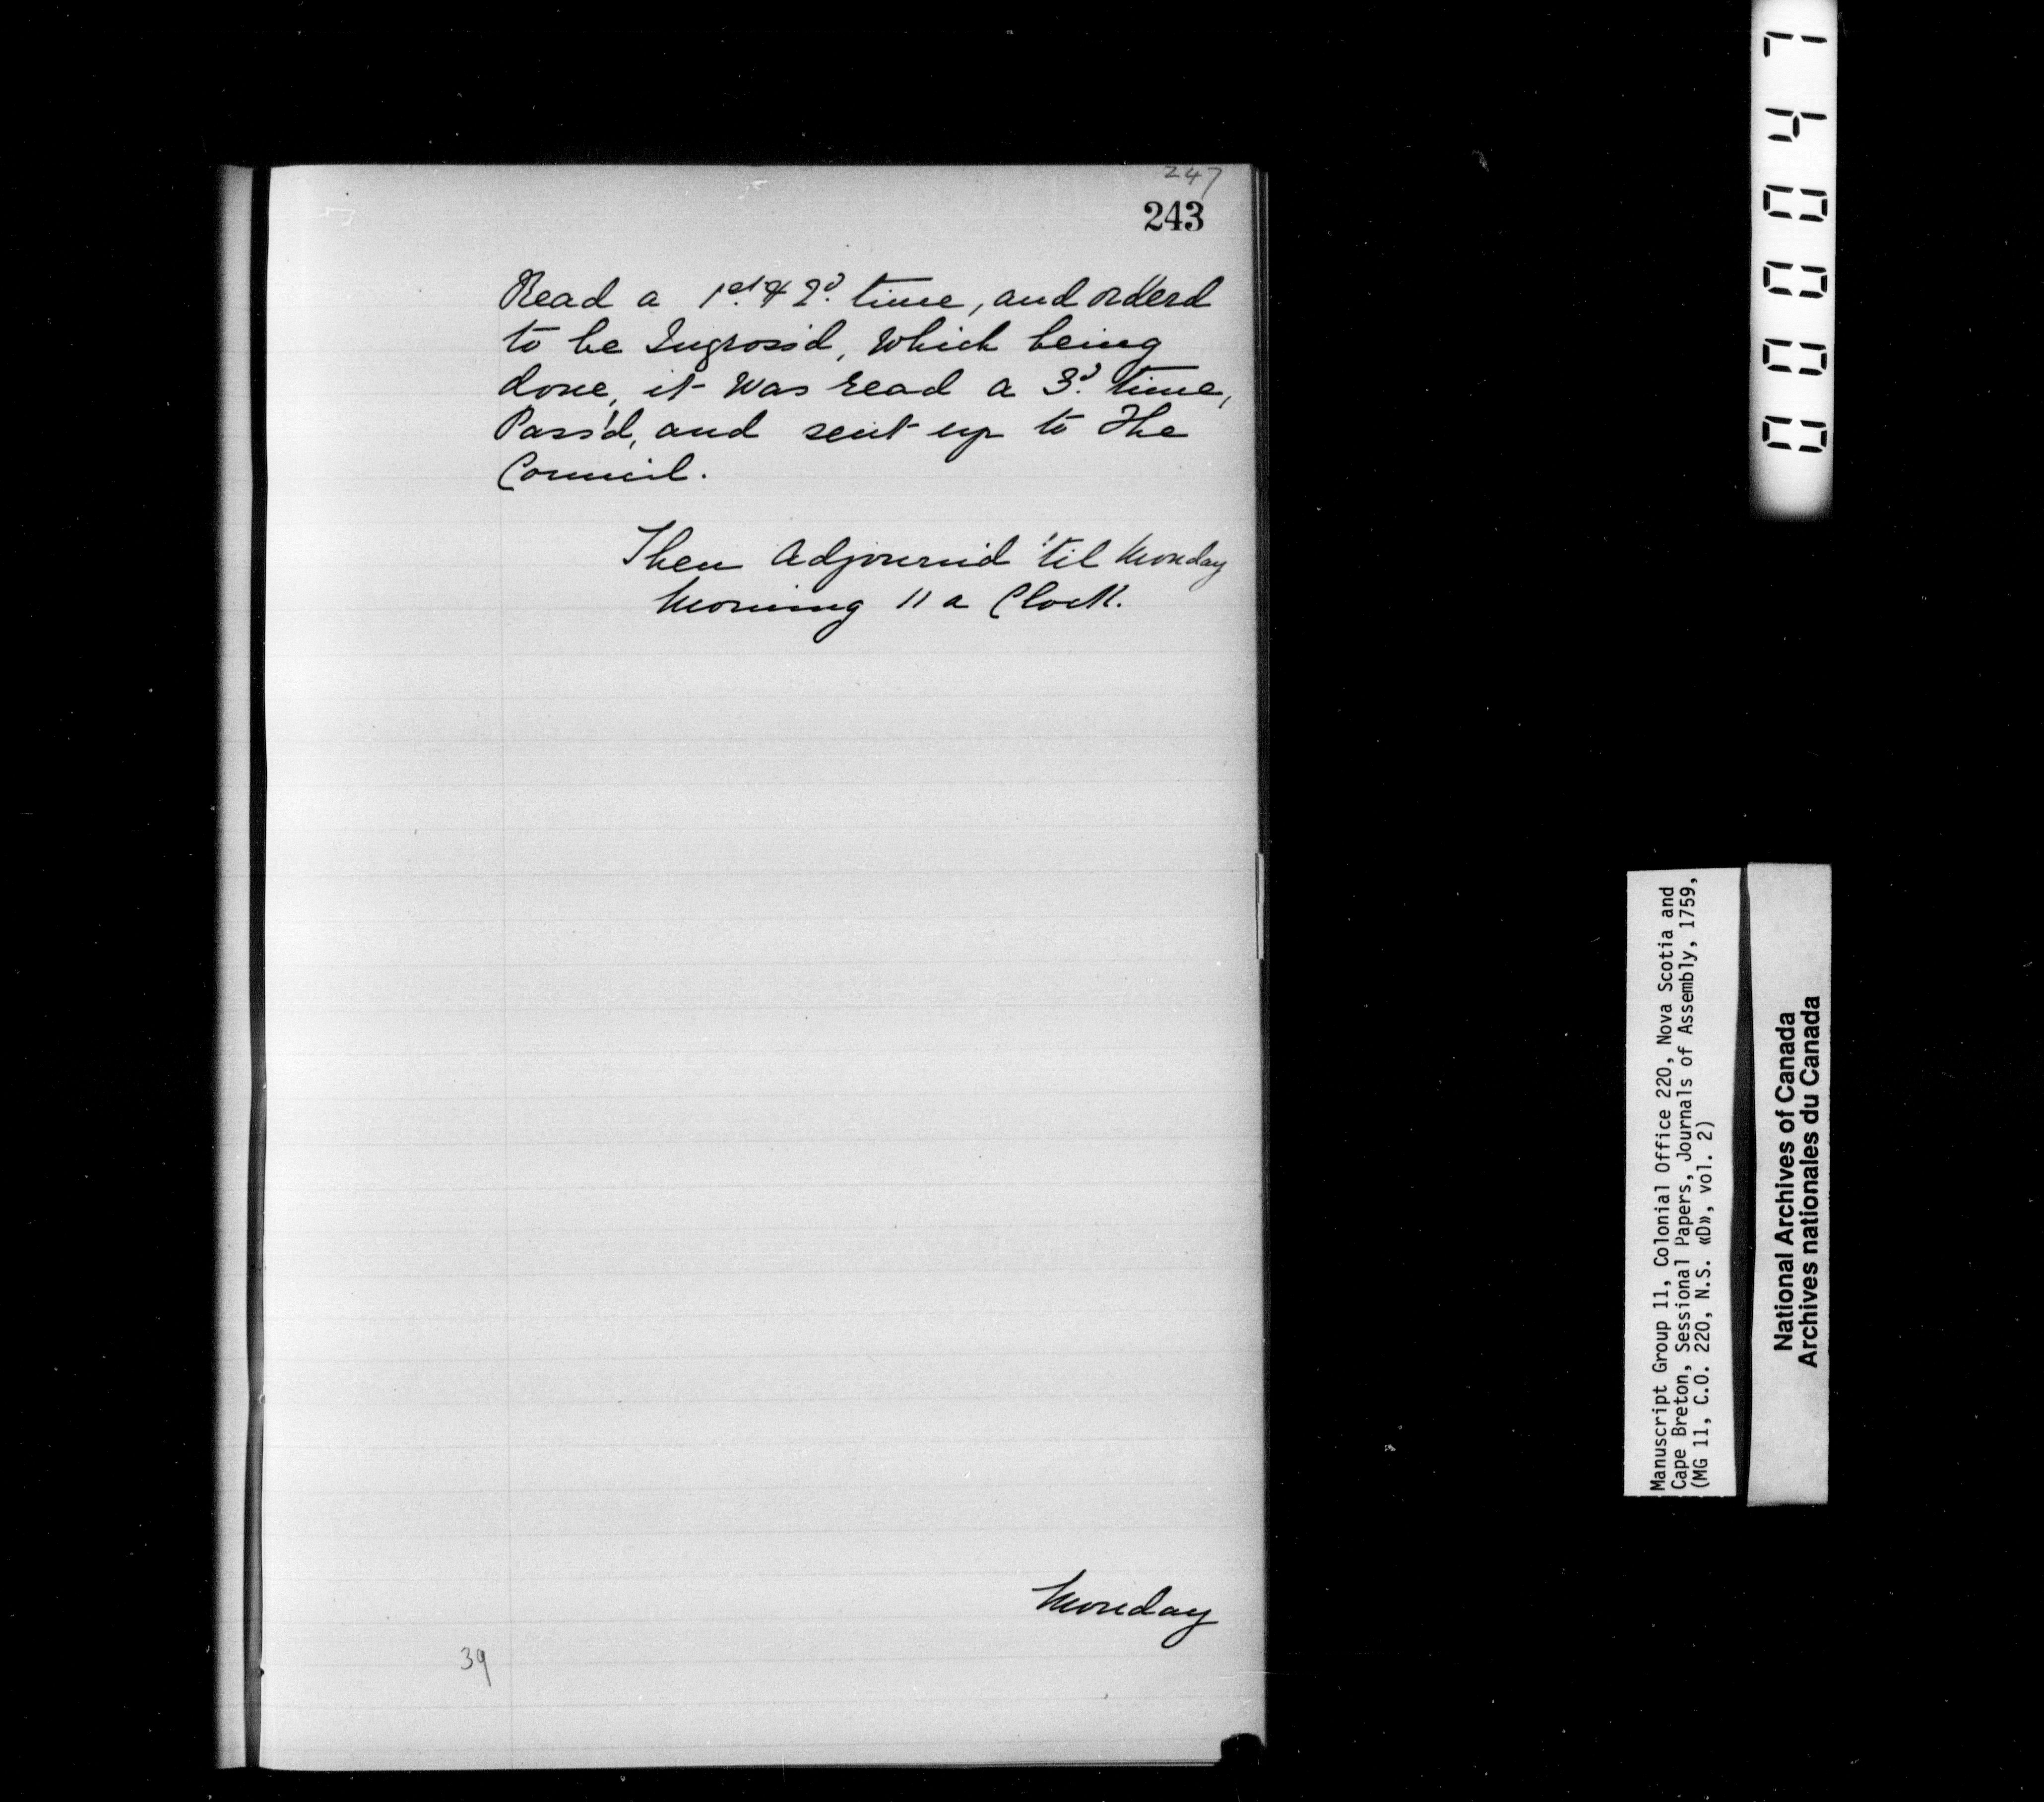 247
243
Read a 1st. & 2d. time, and order'd
to be Ingross'd, Which being
done, it was read a 3d. time,
Pass'd, and sent up to The
Council.
Then Adjourn'd 'til Monday
Morning 11 a Clock.
Monday
39
000047
Manuscript Group 11, Colonial Office 220, Nova Scotia and
Cape Breton, Sessional Papers, Journals of Assembly, 1759,
(MG 11, C.O. 220, N.S. «D», vol. 2)
National Archives of Canada
Archives nationales du Canada